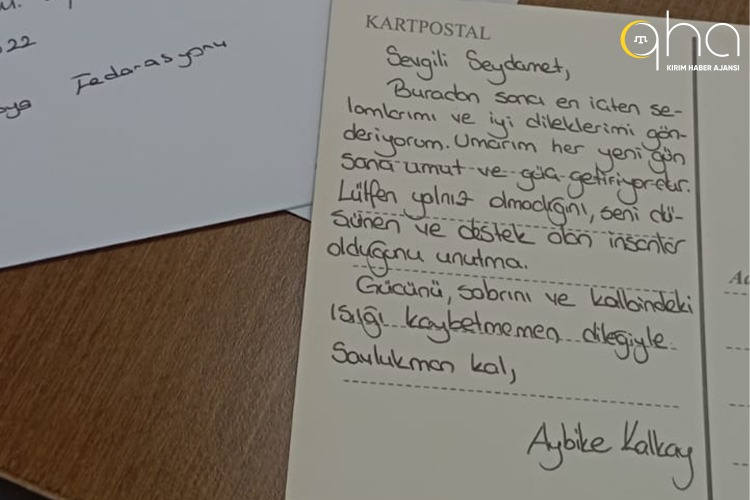 22
Federasyonu
KARTPOSTAL
Sevgili Seydamet,
Buradan sana en içten se-
lamlarımı ve iyi dileklerimi gön-
deriyorum. Umarım her yeni gün
sana umut ve güç getiriyordur.
Lütfen yalnız olmadığını, seni dü-
şünen ve destek olan insanlar
olduğunu unutma.
Gücünü, sabrını ve kalbindeki
ışığı kaybetmemen dileğiyle.
Savlukman kal,
Aybike Kalkay
qha
KIRIM HABER AJANSI